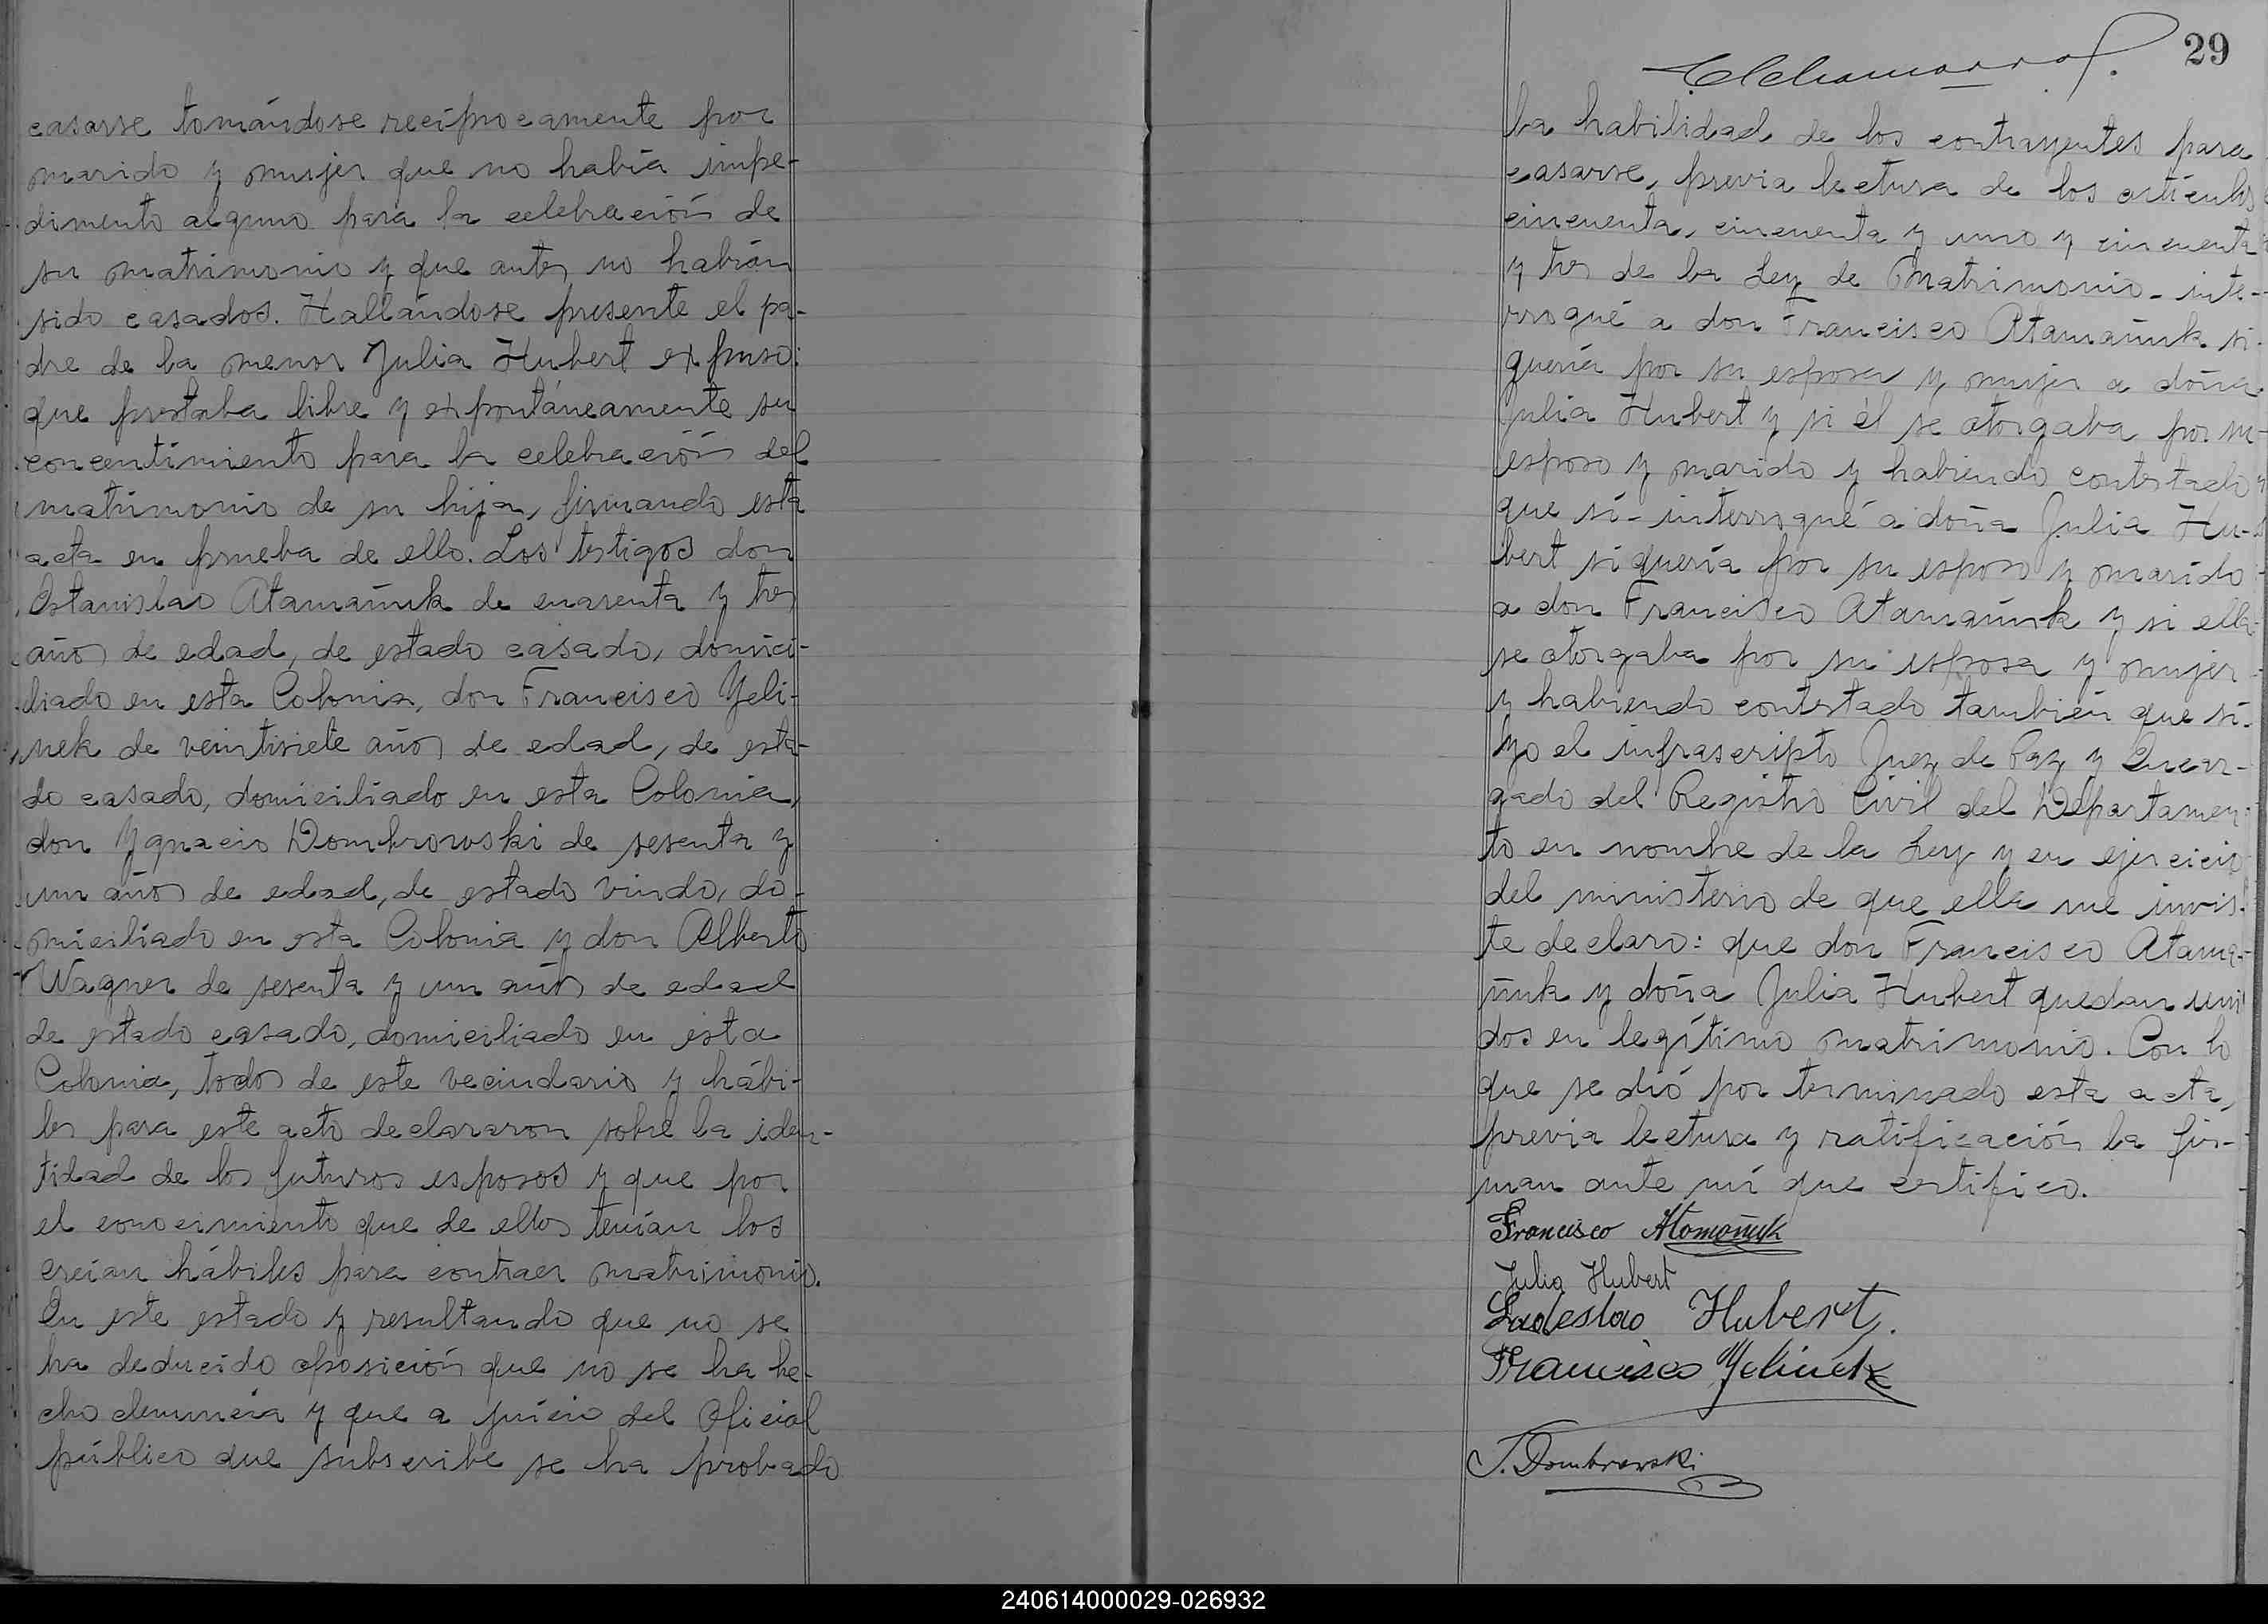 casarse tomándose recíprocamente por
marido y mujer que no había impe-
dimento alguno para la celebración de
su matrimonio y que antes no habían
sido casados. Hallándose presente el pa-
dre de la menor Julia Hubert expuso:
que prestaba libre y expontáneamente su
concentimiento para la celebración del
matrimonio de su hija, firmando esta
acta en prueba de ello. Los testigos don
Estanislao Atamañuk de cuarenta y tres
años de edad, de estado casado, domici-
liado en esta Colonia, don Francisco Yeli-
nek de veintisiete años de edad, de esta-
do casado, domiciliado en esta Colonia,
don Ygnacio Dombrowski de sesenta y
un años de edad, de estado viudo, do-
miciliado en esta Colonia y don Alberto
Wagner de sesenta y un años de edad
de estado casado, domiciliado en esta
Colonia, todos de este vecindario y hábi-
les para este acto declararon sobre la iden-
tidad de los futuros esposos y que por
el conocimiento que de ellos tenían los
creían hábiles para contraer matrimonio.
En este estado y resultando que no se
ha deducido oposición que no se ha he-
cho denuncia y que a juicio del Oficial
público que subscribe se ha probado
29
la habilidad de los contrayentes para
casarse, previa lectura de los artículos
cincuenta, cincuenta y uno y cincuenta
y tres de la Ley de Matrimonio - inte-
rrogué a don Francisco Atamañuk si
quería por su esposa y mujer a doña
Julia Hubert y si él se otorgaba por su
esposo y marido y habiendo contestado
que sí - interrogué a doña Julia Hu-
bert si quería por su esposo y marido
a don Francisco Atamañuk y si ella
se otorgaba por su esposa y mujer
y habiendo contestado también que sí.
yo el infrascripto Juez de Paz y Encar-
gado del Registro Civil del Departamen-
to en nombre de la Ley y en ejercicio
del ministerio de que ella me invis-
te declaro: que don Francisco Atama-
ñuk y doña Julia Hubert quedan uni
dos en legítimo matrimonio. Con lo
que se dió por terminado esta acta,
previa lectura y ratificación la fir-
man ante mí que certifico.
Francisco Atamañuk
Julia Hubert
Ladeslao Hubert.
Francisco Yelinek
J. Dombrowski
240614000029-026932